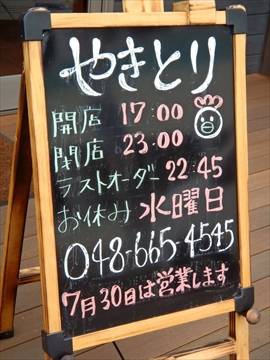 やきとり
開店 17:00
閉店 23:00
ラストオーダー 22:45
お休み 水曜日
048-665-4545
7月30日は営業します